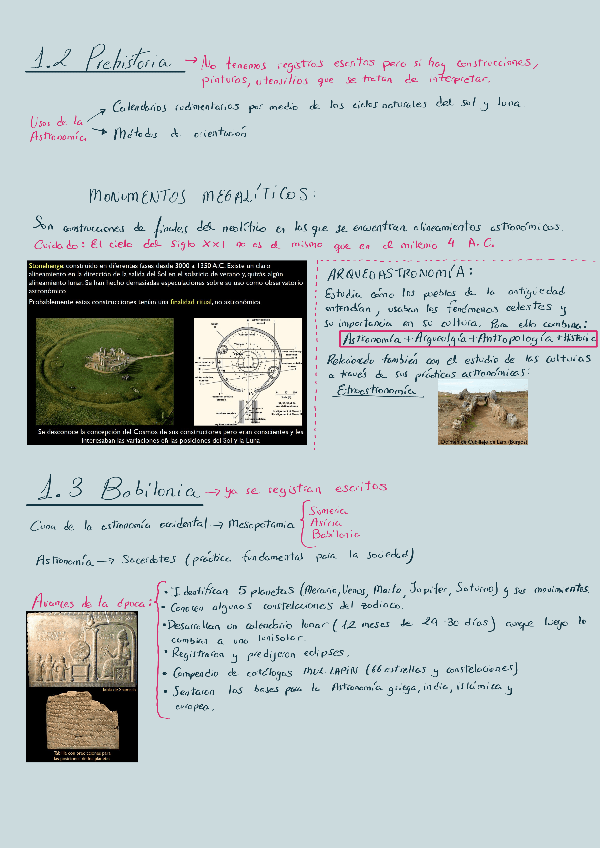 1.2 Prehistoria → No tenemos registros escritos pero si hay construcciones,
pinturas, utensilios que se tratan de interpretar.
Usos de la
Astronomía
Calendarios rudimentarios por medio de los ciclos naturales del sol y luna
Métodos de orientación
MONUMENTOS MEGALÍTICOS:
Son construcciones de finales del neolítico en los que se encuentran alineamientos astronómicos.
Cuidado: El cielo del siglo XXI no es el mismo que en el milenio 4 A.C.
Stonehenge: construido en diferentes fases desde 3000 a 1350 A.C. Existe un claro
alineamiento en la dirección de la salida del Sol en el solsticio de verano y, quizás algún
alineamiento lunar. Se han hecho demasiadas especulaciones sobre su uso como observatorio
astronómico
Probablemente estas construcciones tenían una finalidad ritual, no astronómica
Se desconoce la concepción del Cosmos de sus constructores pero eran conscientes y les
interesaban las variaciones en las posiciones del Sol y la Luna
ARQUEOASTRONOMÍA:
Estudia cómo los pueblos de la antigüedad
entendían, usaban los fenómenos celestes y
su importancia en su cultura. Para ello combina:
Astronomía + Arqueología + Antropología + Historia
Relacionado también con el estudio de las culturas
a través de sus prácticas astronómicas:
Etnoastronomía
Dolmen de Cubillejo de Lara (Burgos)
1.3 Babilonia → ya se registran escritos
Cuna de la astronomía occidental → Mesopotamia
Sumeria
Asiria
Babilonia
Astronomía → Sacerdotes (práctica fundamental para la sociedad)
Avances de la época:
• Identifican 5 planetas (Mercurio, Venus, Marte, Jupiter, Saturno) y sus movimientos.
• Conocen algunas constelaciones del zodiaco.
• Desarrollan un calendario lunar (12 meses de 29-30 días) aunque luego lo
cambian a uno lunisolar.
• Registraron y predijeron eclipses.
• Compendio de catálogos MUL.APIN (66 estrellas y constelaciones)
• Sentaron las bases para la Astronomía griega, india, islámica y
europea.
Tablilla con predicciones para
las posiciones de los planetas